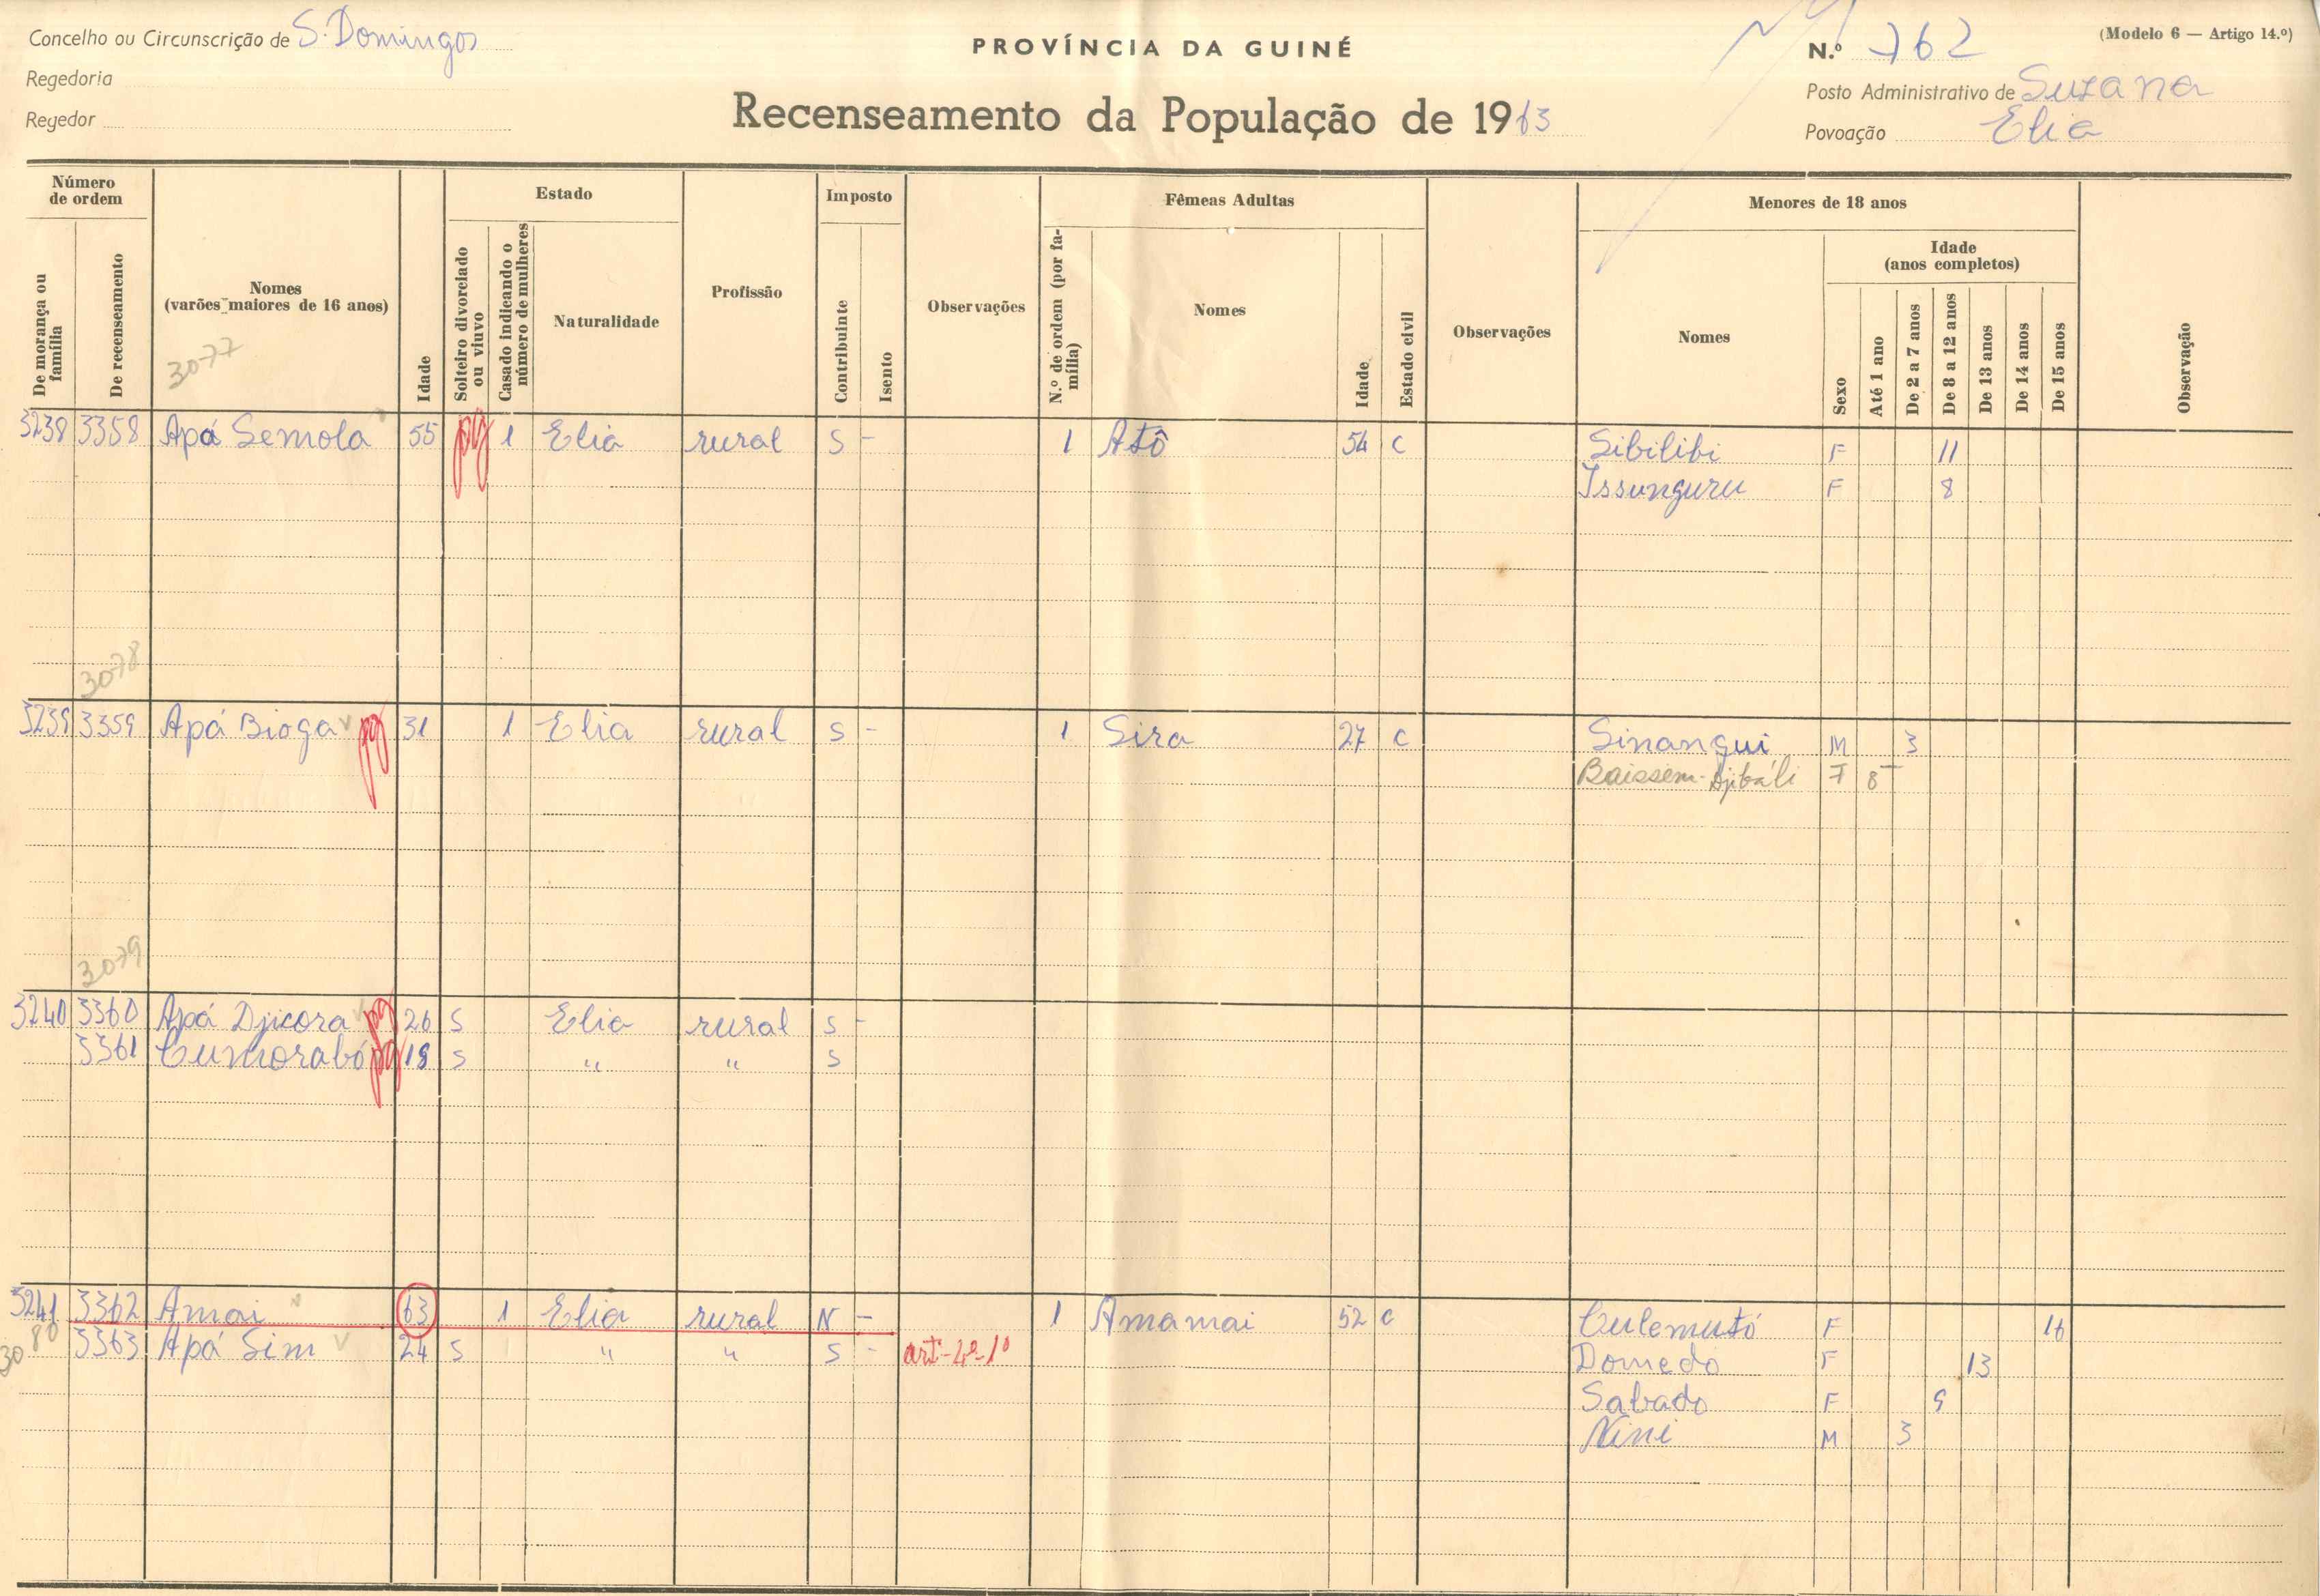 Concelho ou Circunscrição de S. Domingos
Regedoria
Regedor
PROVÍNCIA DA GUINÉ
Recenseamento da População de 1963
(Modelo 6 — Artigo 14.º)
N.º 762
Posto Administrativo de Suzana
Povoação Elia
Número de ordem
De morança ou família
De recenseamento
Nomes
(varões maiores de 16 anos)
3077
Idade
Estado
Solteiro divorciado ou viuvo
Casado indicando o número de mulheres
Naturalidade
Profissão
Imposto
Contribuinte
Isento
Observações
Fêmeas Adultas
N.º de ordem (por família)
Nomes
Idade
Estado civil
Observações
Menores de 18 anos
Nomes
Sexo
Idade
(anos completos)
Até 1 ano
De 2 a 7 anos
De 8 a 12 anos
De 13 anos
De 14 anos
De 15 anos
Observação
3238 3358 Apá Semola 55 pg 1 Elia rural S - 1 Atô 54 C Sibilibi F 11
Issunguru F 8
3078
3239 3359 Apá Bioga pg 31 1 Elia rural S - 1 Sira 27 C Sinangui M 3
Baissem-Djibáli F 8
3079
3240 3360 Apá Djicora pg 26 S Elia rural S -
3361 Cumorabó pg 18 S " " S
3241 3362 Amai 63 1 Elia rural N - 1 Amamai 52 C Culemutó F 16
3080 3363 Apá Sim 24 S " " S - art-2º-1º Domedo F 13
Sabado F 9
Nini M 3